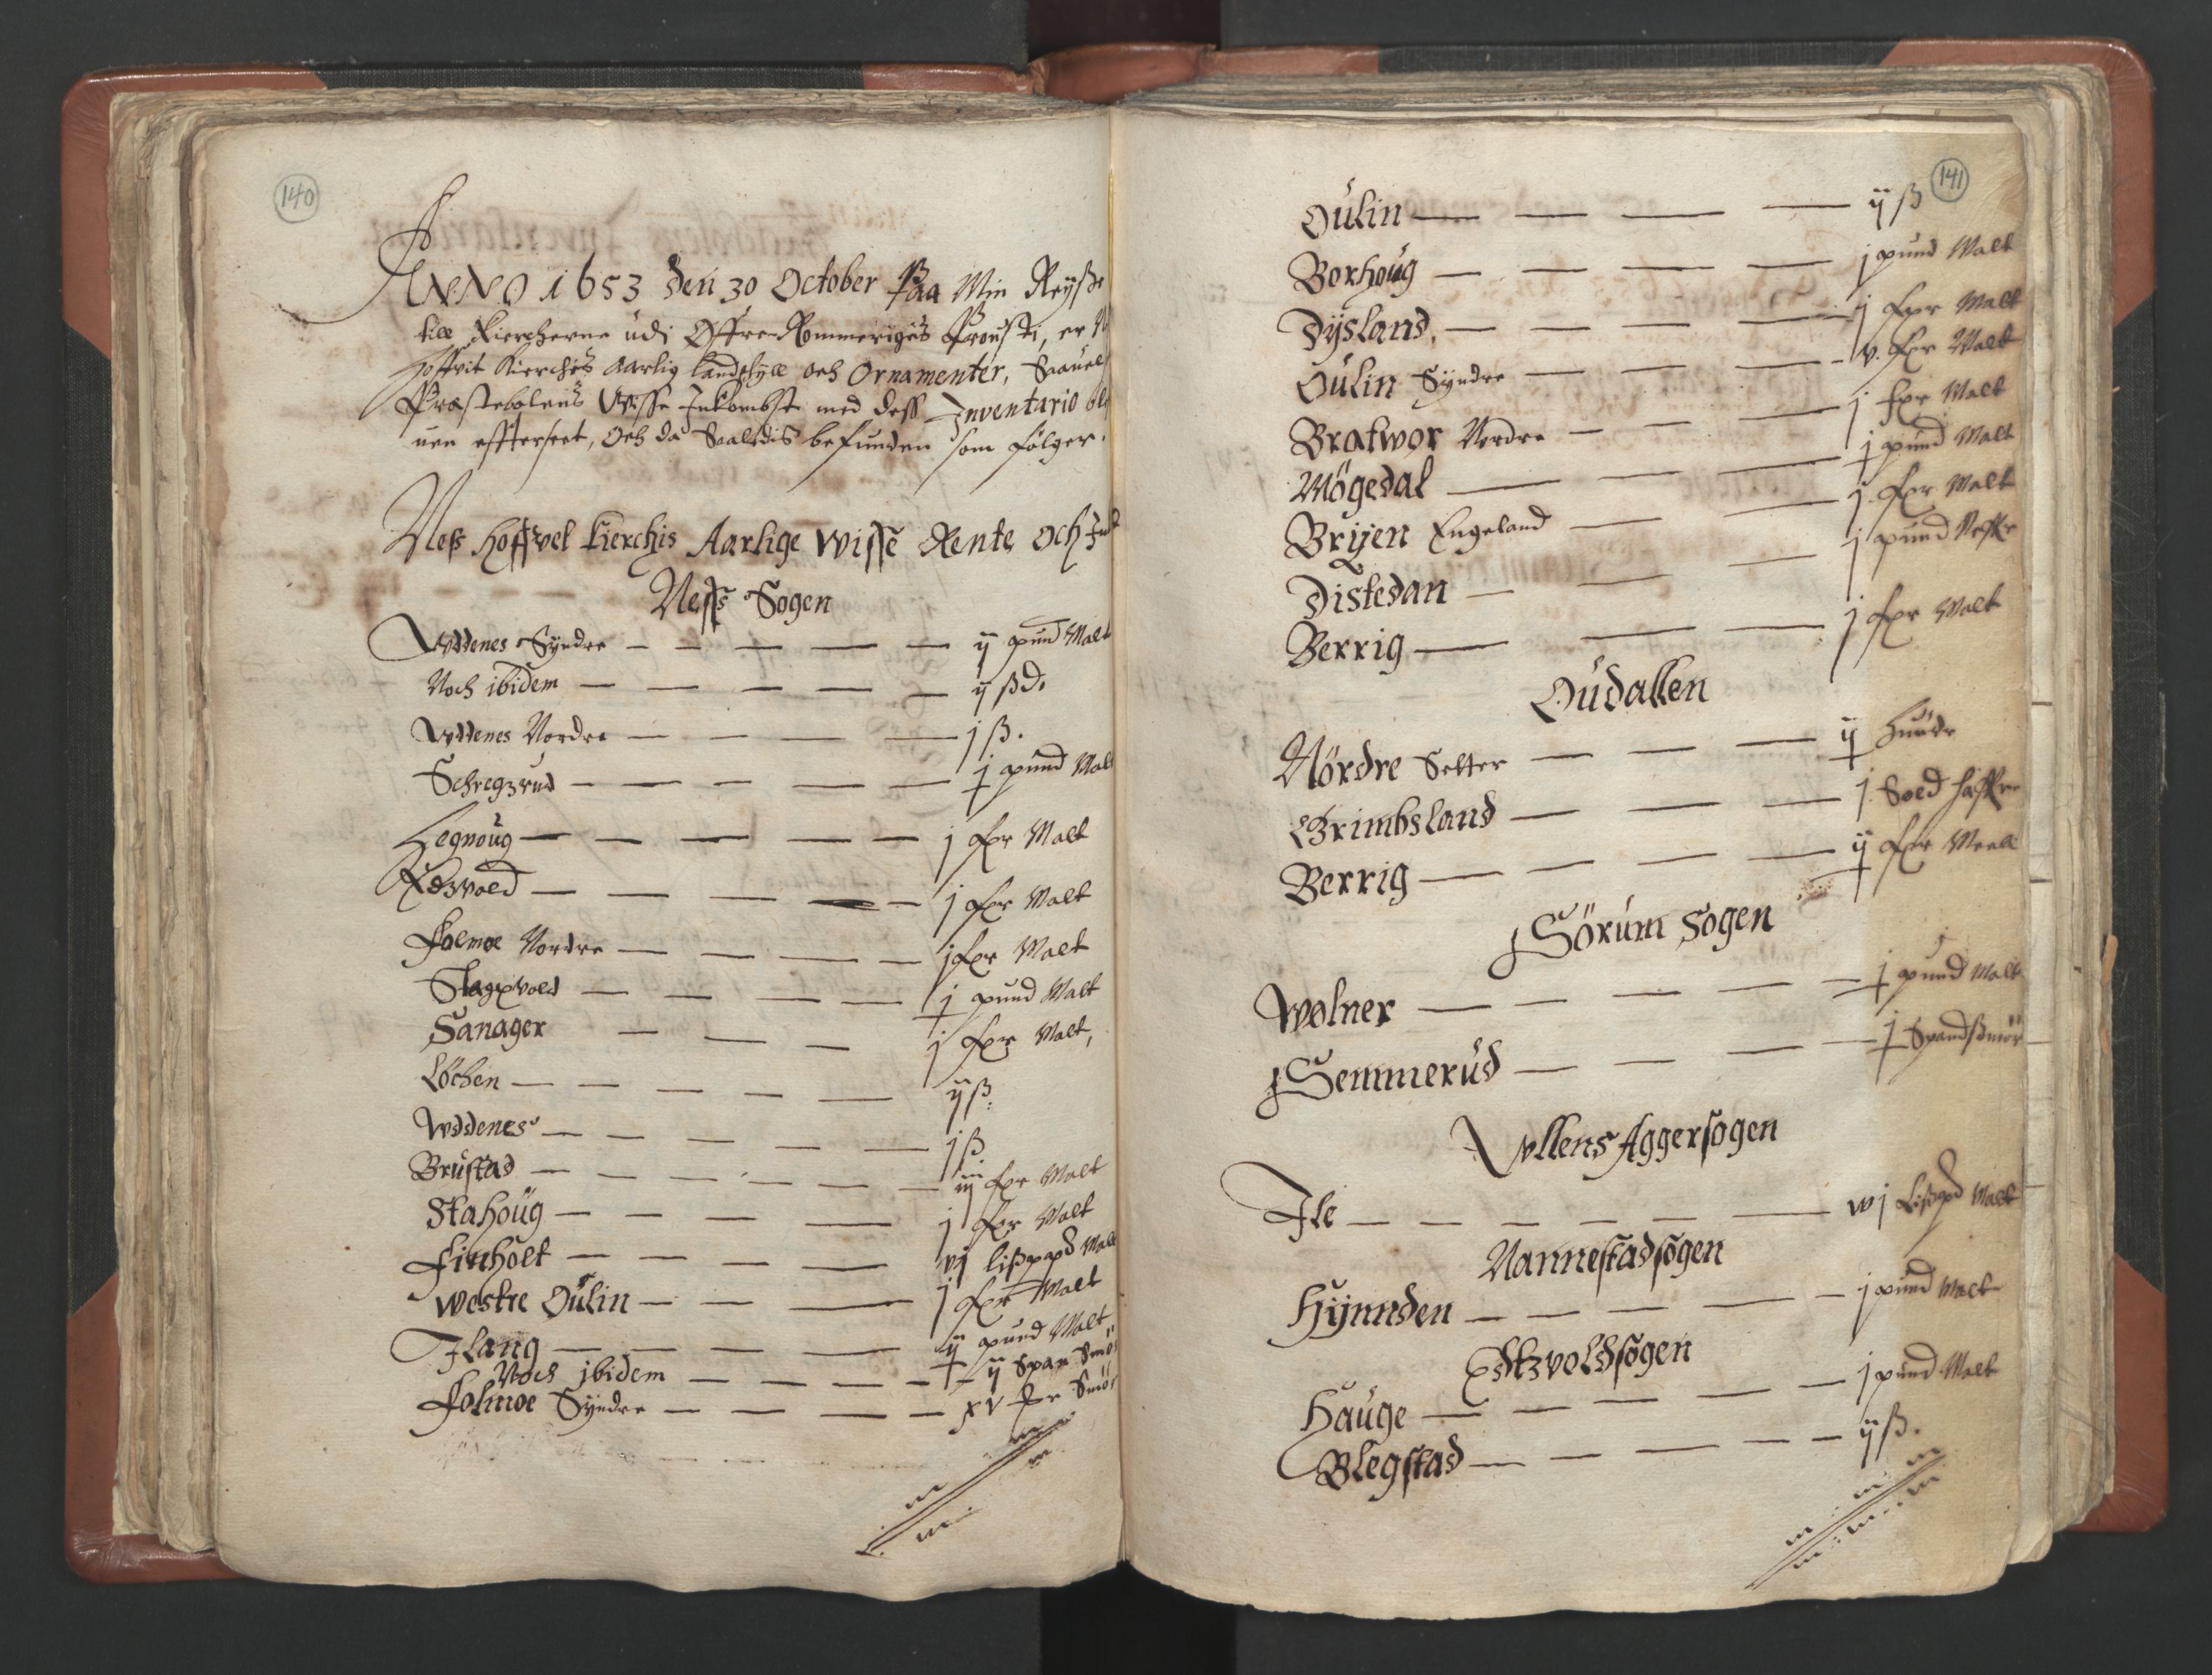 140
Anno 1653 den 30 October Paa Min Reysze
till Kiercherne udi Øffre Rommerigis Prousti, er
hoffvit Kierchis Aarlig landskyll och Ornamenter, Saauel
Præstebolens Wisse Inkombst med dess Inventario
uen effterseet, Och da Saaledis befunden som følger.
Ness hoffvel Kierchis Aarlige Wisse Rente Och
Ness Sogen
Wddenes Syndre — — — — — ij pund Malt
Noch ibidem — — — — — ij ßd.
Wddenes Nordre — — — — j ß.
Schregzrud — — — — — j pund Malt
Hegnoug — — — — — j fpr Malt
Edzvold — — — — — j fpr Malt
Folmoe Nordre — — — — j fpr Malt
Slagzvold — — — — j pund Malt
Sanager — — — j fpr Malt,
Löchen — — — — — ij ß.
Wddenes — — — — — j ß
Brustad — — — — — — iij fpr Malt
Stahoüg — — — — j fpr Malt
Finholt — — — — vj lißpd Malt
Westre Oülin — — — j fpr Malt
Ilang — — — — ij pund Malt
Noch ibidem — — — — — ij Span Smör
Folmoe Syndre — — — — xv fpr Smör
141
Oülin — — — — ij ß
Borhoüg — — — — j pund Malt
Dysland. — — — — j fpr Malt
Oülin Syndre — — — — v. fpr Malt
Bratwor Nordre — — — j fpr Malt
Mögedal — — — j pund Malt
Bryen Engeland — — j. fpr Malt
Distedan — — — j pund
Berrig — — — j fpr Malt
Oüdallen
Nördre Setter — — — ij Huude
Grimbsland — — — j. Soed
Berrig — — — — ij fpr Meell
Sörüm Sogen
Wolner — — — — j pund Malt
Semmerüd — — — j Spand Smör
Vllens Aggersogen
Ile — — — — — — vj Lißpd Malt
Nannestadsogen
Hynnden — — — — — j pund Malt
Edtzvoldsogen
Hauge — — — — j pund Malt
Blegstad — — — — — ij ß.